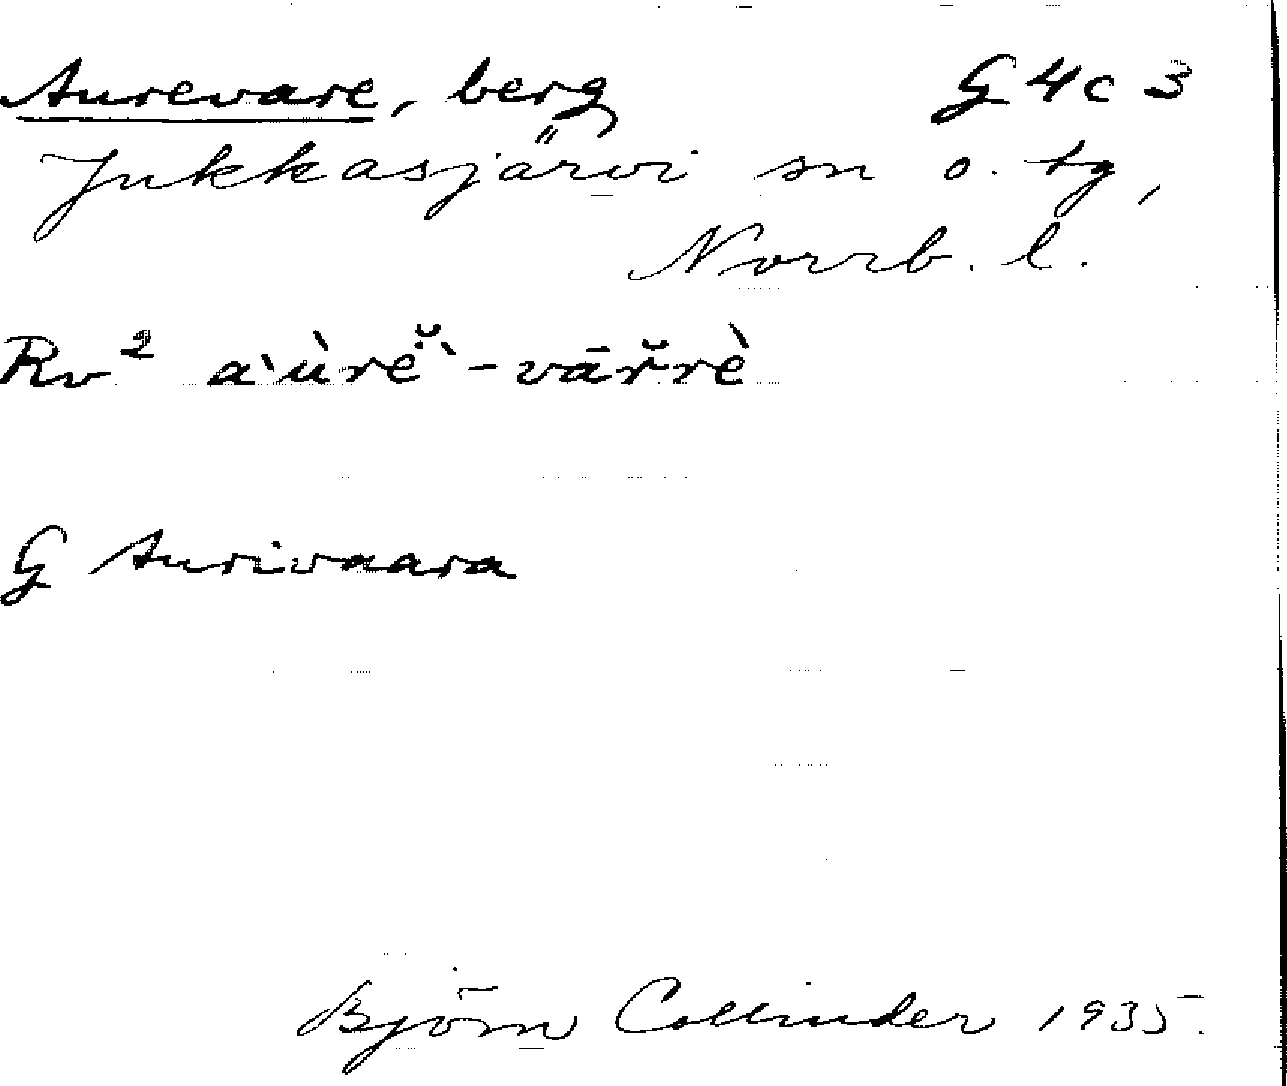 Aurevare, berg G 4c 3
Jukkasjärvi sn o. tg,
Norrb. l.
Rv² a`ùrĕ̈`-vār̆rè
G Aurivaara
Björn Collinder 1935.